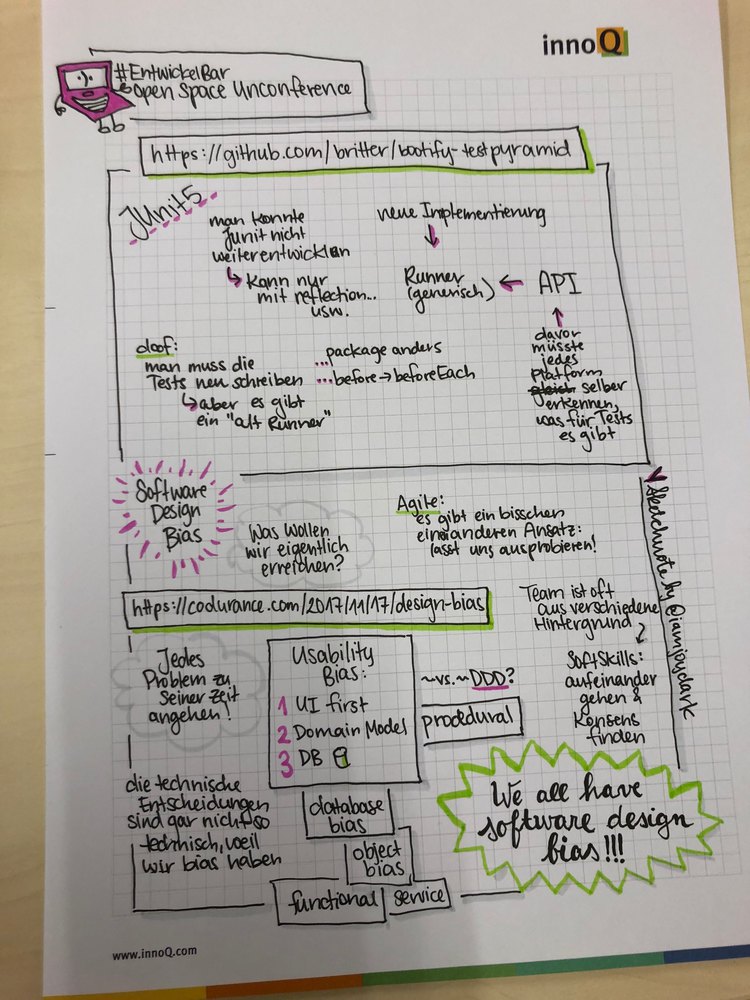 innoQ
#EntwickelBar
Open Space Unconference
https://github.com/britter/bootify-testpyramid
JUnit5
man konnte
Junit nicht
weiterentwickeln
↳ Kann nur
mit reflection...
usw.
neue Implementierung
↓
Runner
(generisch)
← API
↑
davor
müsste
jedes
platform
selber
erkennen,
was für Tests
es gibt
doof:
man muss die
Tests neu schreiben
↳ aber es gibt
ein "alt Runner"
...package anders
...before→beforeEach
Software
Design
Bias
Was wollen
wir eigentlich
erreichen?
Agile:
es gibt ein bisschen
einen anderen Ansatz:
lasst uns ausprobieren!
Sketchnote by @iamjoyclark
https://codurance.com/2017/11/17/design-bias
Team ist oft
aus verschiedene
Hintergrund
SoftSkills:
aufeinander
gehen &
Konsens
finden
Jedes
Problem zu
seiner Zeit
angehen!
Usability
Bias:
1 UI first
2 Domain Model
3 DB
~vs.~ DDD?
procedural
die technische
Entscheidungen
sind gar nicht so
technisch, weil
wir bias haben
database
bias
object
bias
functional
service
We all have
software design
bias!!!
www.innoQ.com